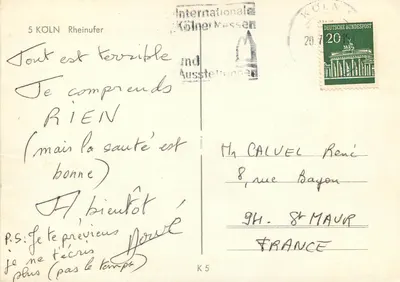 5 KÖLN Rheinufer
Tout est terrible
Je comprends
RIEN
(mais la santé est
bonne)
A bientôt
P.S: Je te préviens
je ne t'écris
plus (pas le temps)
Internationale
Kölner Messen
und
Ausstellungen
KÖLN
20
Mr CALVEL René
8, rue Bayon
94. St MAUR
FRANCE
K 5